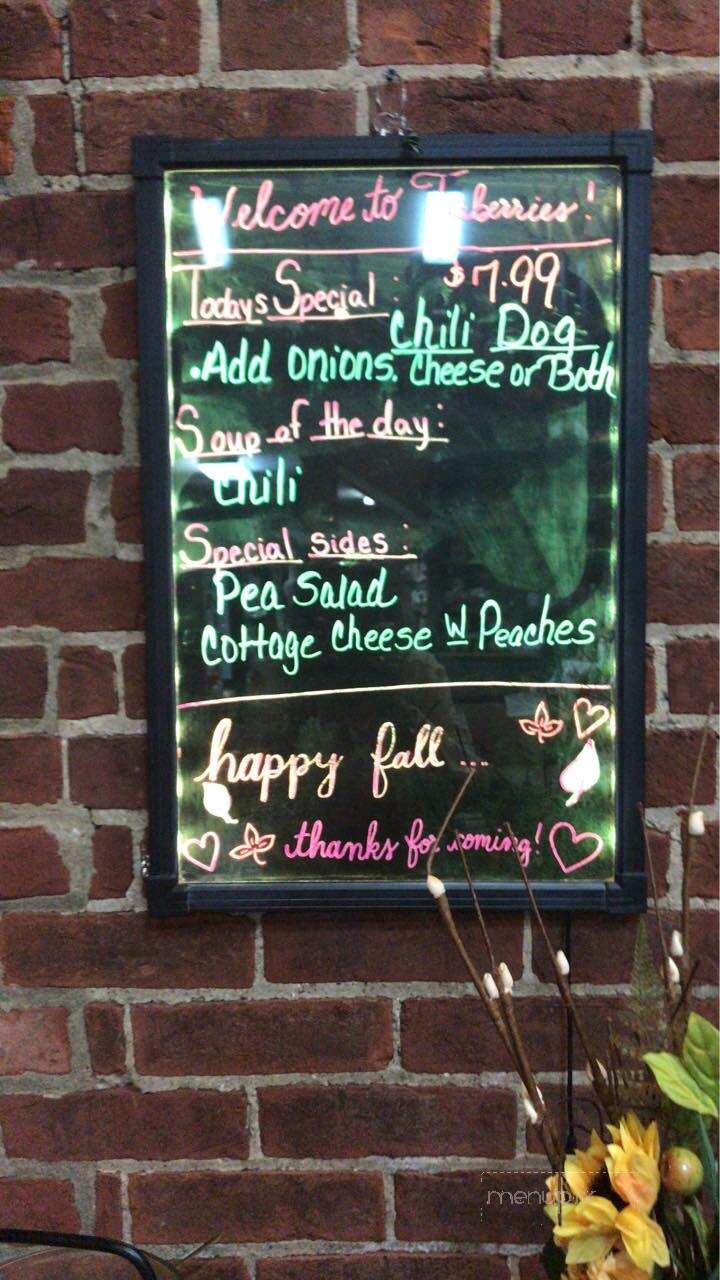 Welcome to Taberries!
Todays Special: $7.99
Chili Dog
.Add onions. Cheese or Both
Soup of the day:
Chili
Special sides:
Pea Salad
Cottage Cheese W Peaches
happy fall...
thanks for coming!